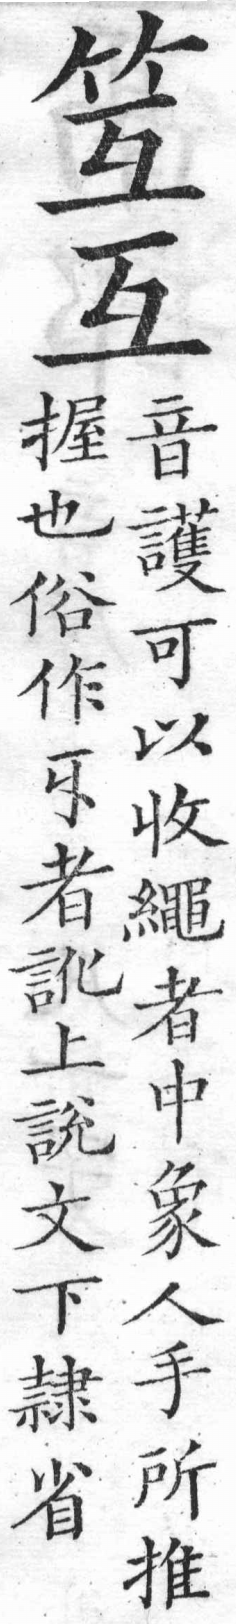 笠互
音護可以收繩者中象人手所推
握也俗作㸦者訛上說文下隷省